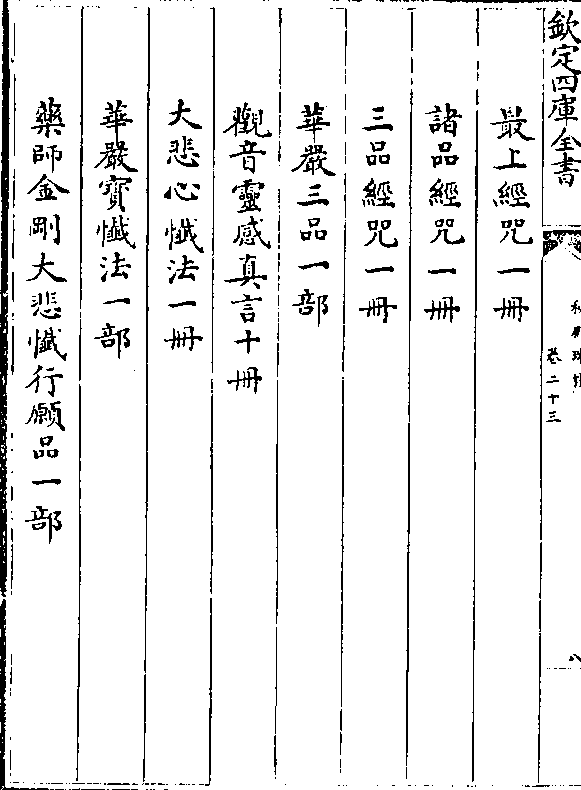 欽定四庫全書
卷二十三
八
最上經咒一冊
諸品經咒一冊
三品經咒一冊
華嚴三品一部
觀音靈感真言十冊
大悲心懺法一冊
華嚴寳懺法一部
藥師金剛大悲懺行願品一部